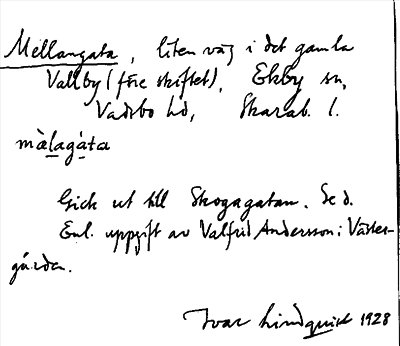 Mellangata, liten väg i det gamla
Vallby (före skiftet), Ekby sn,
Vadsbo hd, Skarab. l.
mὰlagáta
Gick ut till Skogagatan. Se d.
Enl. uppgift av Valfrid Andersson i Väster-
gården.
Ivar Lindquist 1928